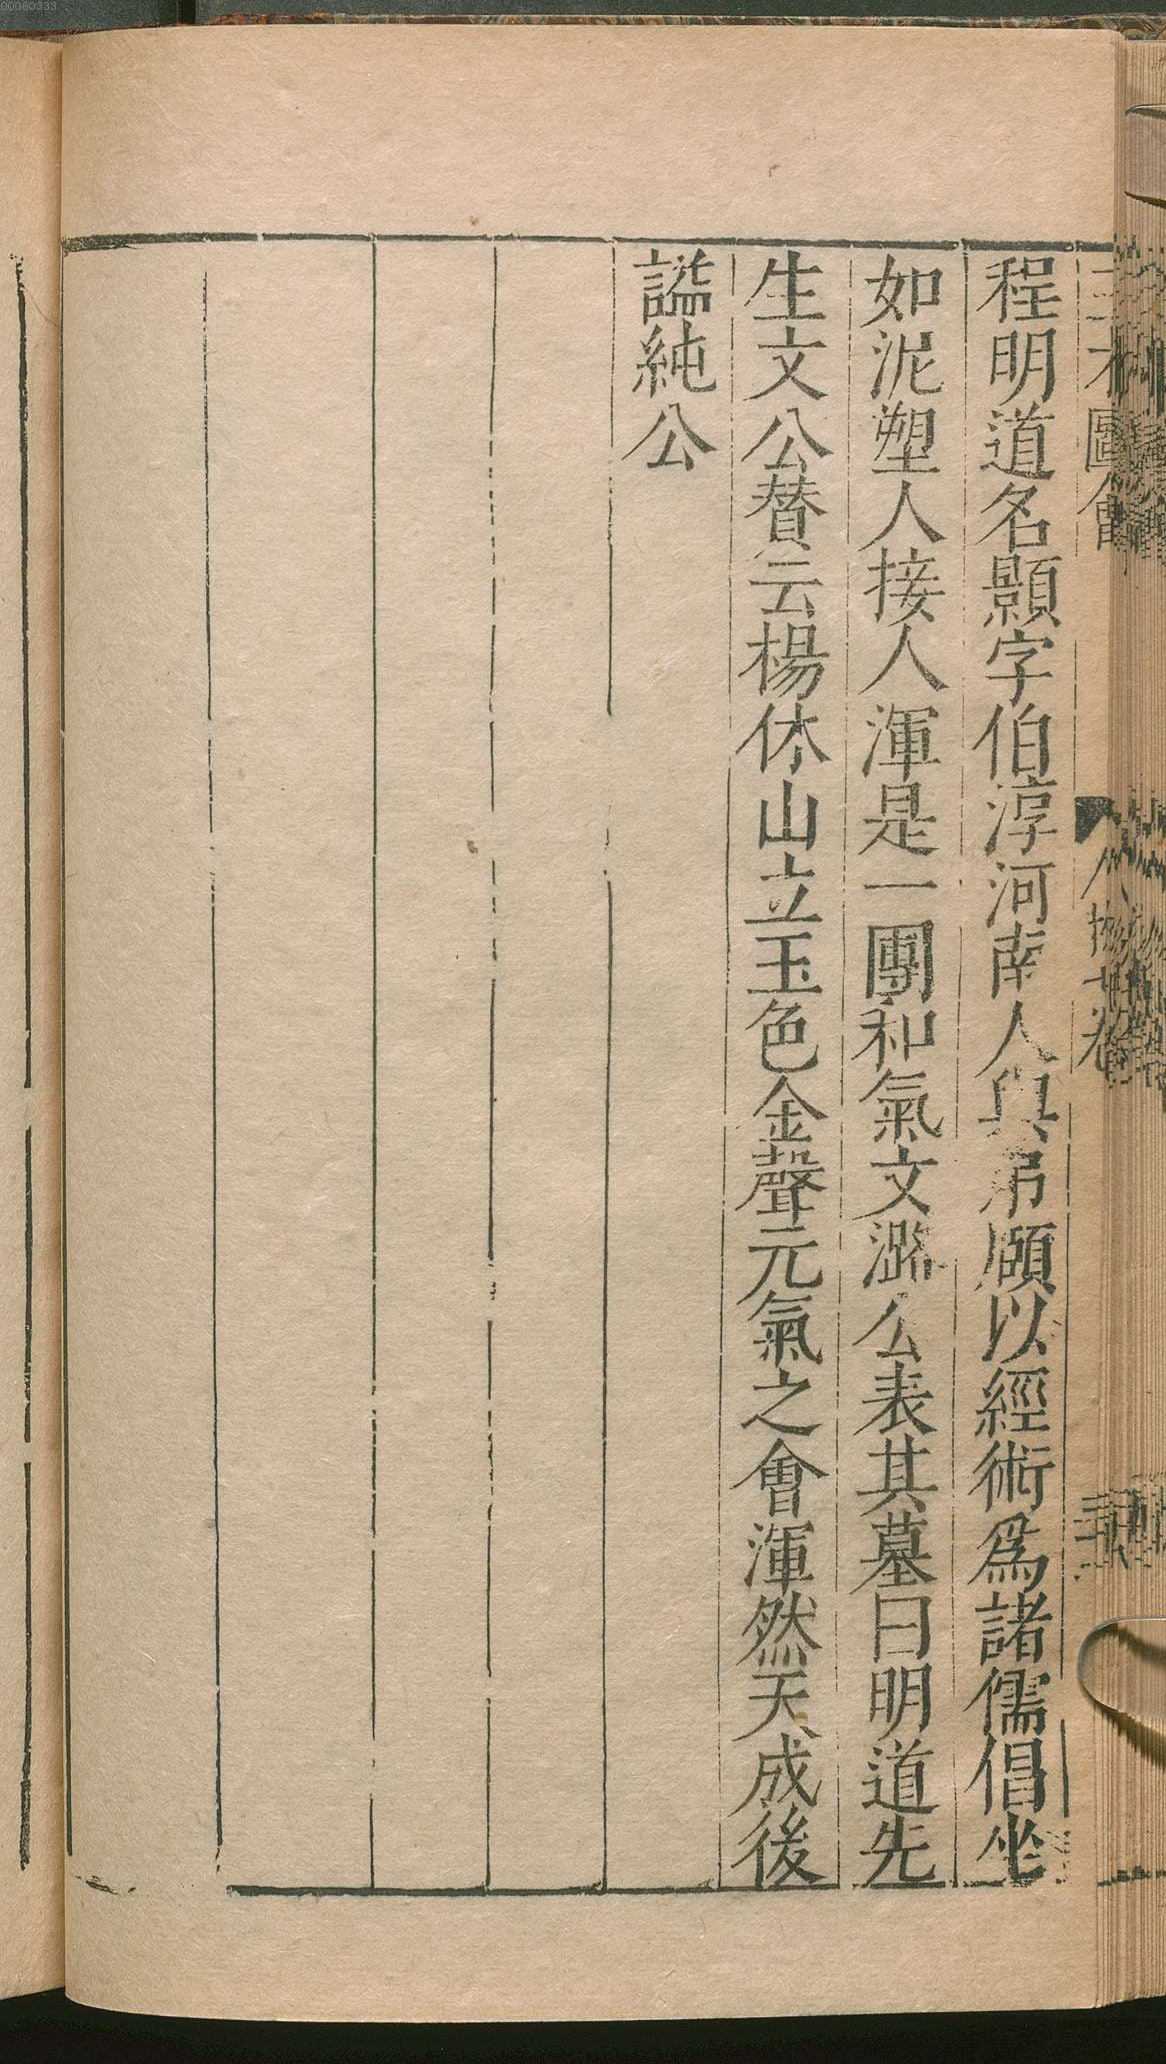 程明道名顥字伯淳河南人與弟頤以經術爲諸儒倡坐
如泥塑人接人渾是一團和氣文潞公表其墓曰明道先
生文公賛云楊休山立玉色金聲元氣之會渾然天成後
謚純公
00060333